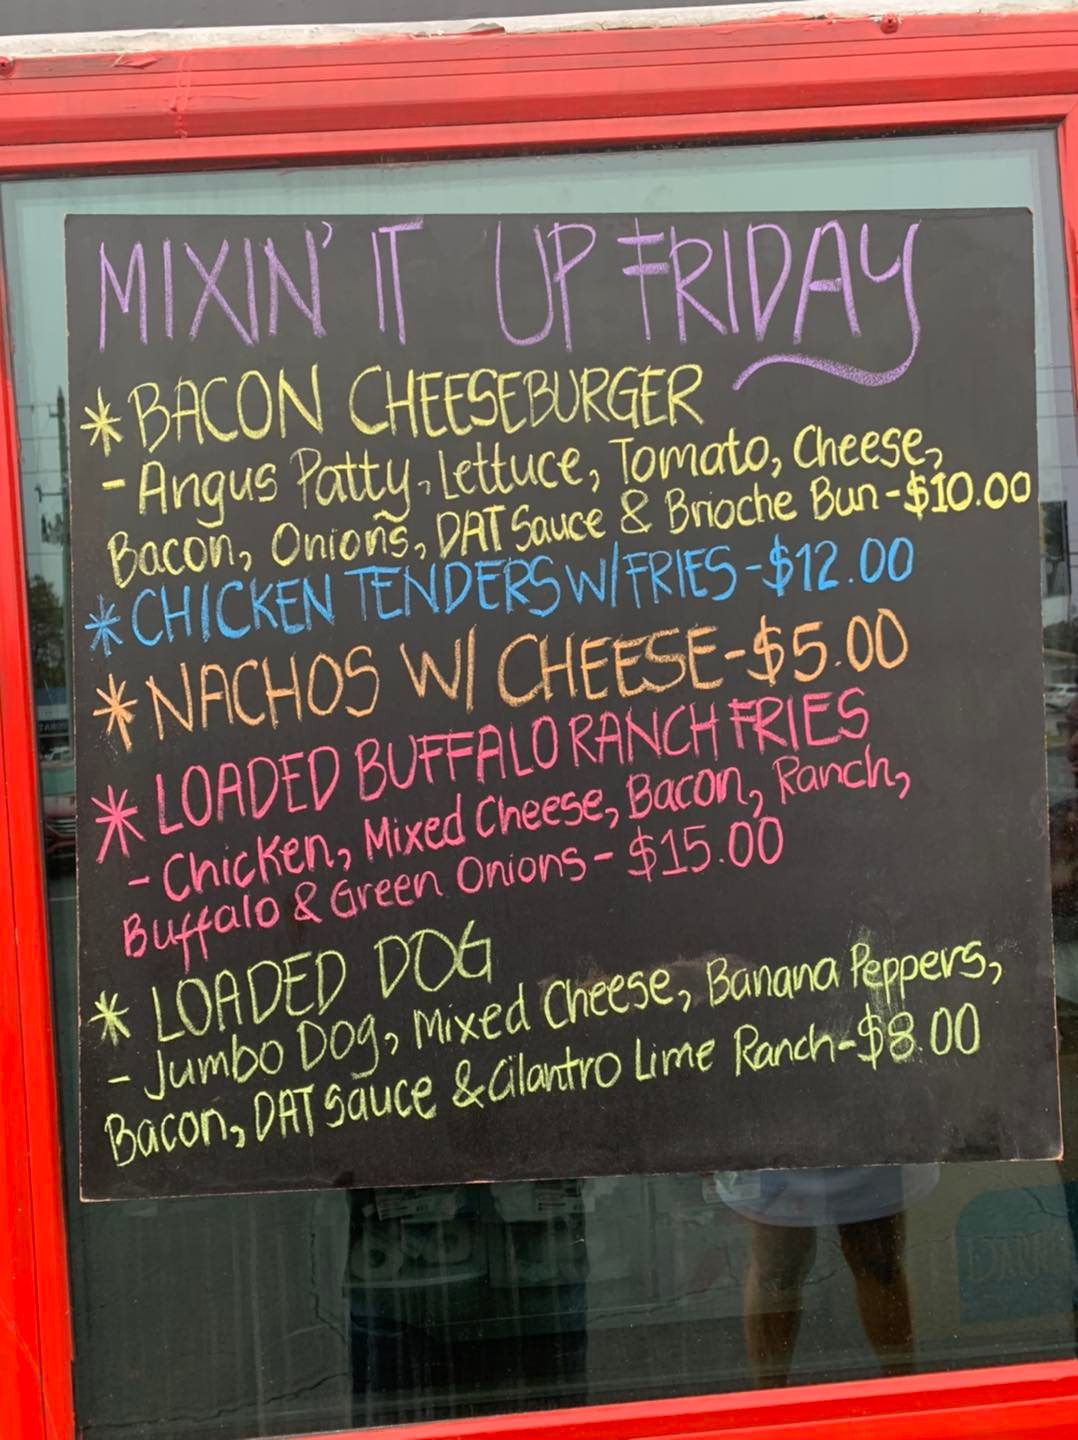 MIXIN' IT UP FRIDAY
* BACON CHEESEBURGER
- Angus Patty, Lettuce, Tomato, Cheese,
Bacon, Onions, DAT Sauce & Brioche Bun - $10.00
* CHICKEN TENDERS W/ FRIES - $12.00
* NACHOS W/ CHEESE - $5.00
* LOADED BUFFALO RANCH FRIES
- Chicken, Mixed Cheese, Bacon, Ranch,
Buffalo & Green Onions - $15.00
* LOADED DOG
- Jumbo Dog, Mixed Cheese, Banana Peppers,
Bacon, DAT Sauce & Cilantro Lime Ranch - $8.00